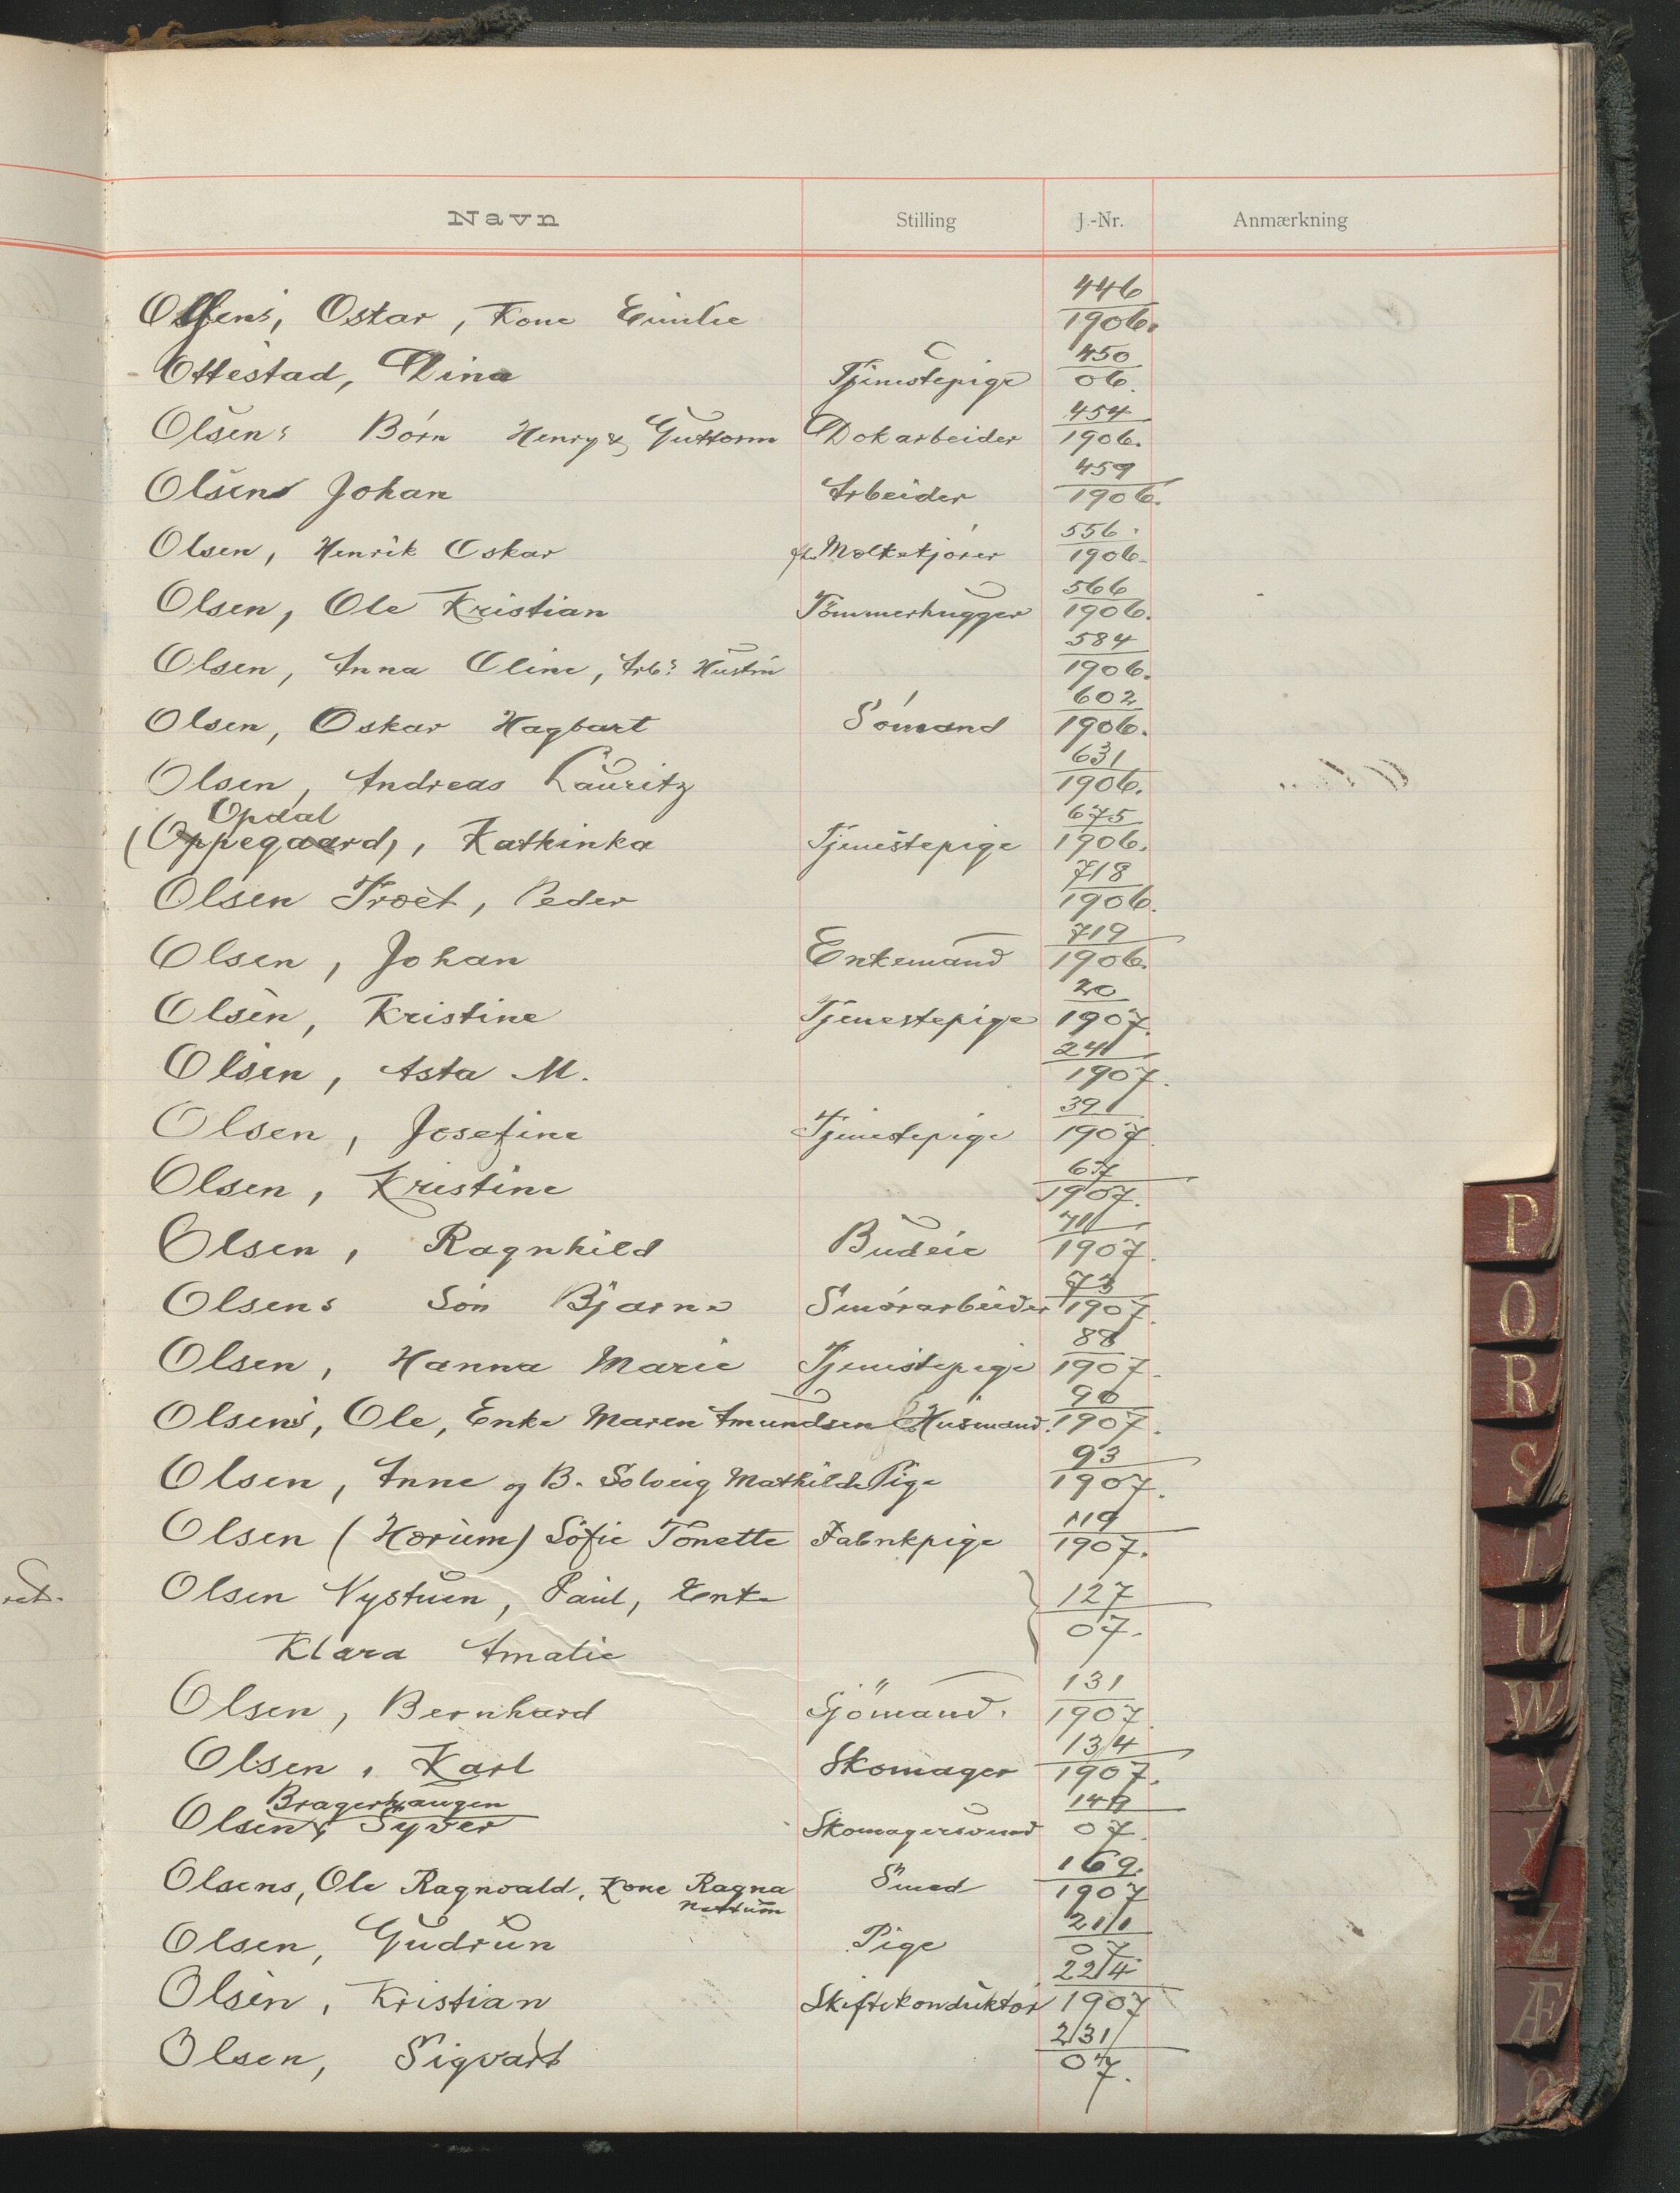 Navn Stilling J.-Nr. Anmærkning
Olsens, Oskar, Kone Emilie 446/1906.
Ottestad, Dina Tjenestepige 450/06.
Olsens Børn Henry & Guttorm Dokarbeider 454/1906.
Olsens Johan Arbeider 459/1906.
Olsen, Henrik Oskar Mælkekjører 556/1906.
Olsen, Ole Kristian Tømmerhugger 566/1906.
Olsen, Anna Oline, Arb's Hustru 584/1906.
Olsen, Oskar Hagbart Sømand 602/1906.
Olsen, Andreas Lauritz 631/1906.
Opdal
(Oppegaard), Kathinka Tjenestepige 675/1906.
Olsen Troet, Peder 718/1906.
Olsen, Johan Enkemand 719/1906.
Olsen, Kristine Tjenestepige 20/1907.
Olsen, Asta M. 24/1907.
Olsen, Josefine Tjenestepige 39/1907.
Olsen, Kristine 67/1907.
Olsen, Ragnhild Budeie 71/1907.
Olsens Søn Bjarne Smørarbeider 73/1907.
Olsen, Hanna Marie Tjenestepige 88/1907.
Olsens, Ole, Enke Maren Amundsen Husmand. 90/1907.
Olsen, Anne og B. Solveig Mathilde Pige 93/1907.
Olsen (Hørum) Sofie Tonette Fabrikpige 119/1907.
Olsen Nystuen, Paul, Enke 127/07.
Klara Amalie
Olsen, Bernhard Sjömand. 131/1907.
Olsen, Karl Skomager 134/1907.
Bragerhaugen
Olsen, Syver Skomagersvend 07.
Olsens, Ole Ragnvald, Kone Ragna Smed 169/1907
Olsen, Gudrun Pige 211/07
Olsen, Kristian Skiftekonduktør 224/1907
Olsen, Sigvart 231/07.
P
O
R
S
T
U
W
X
Z
Æ